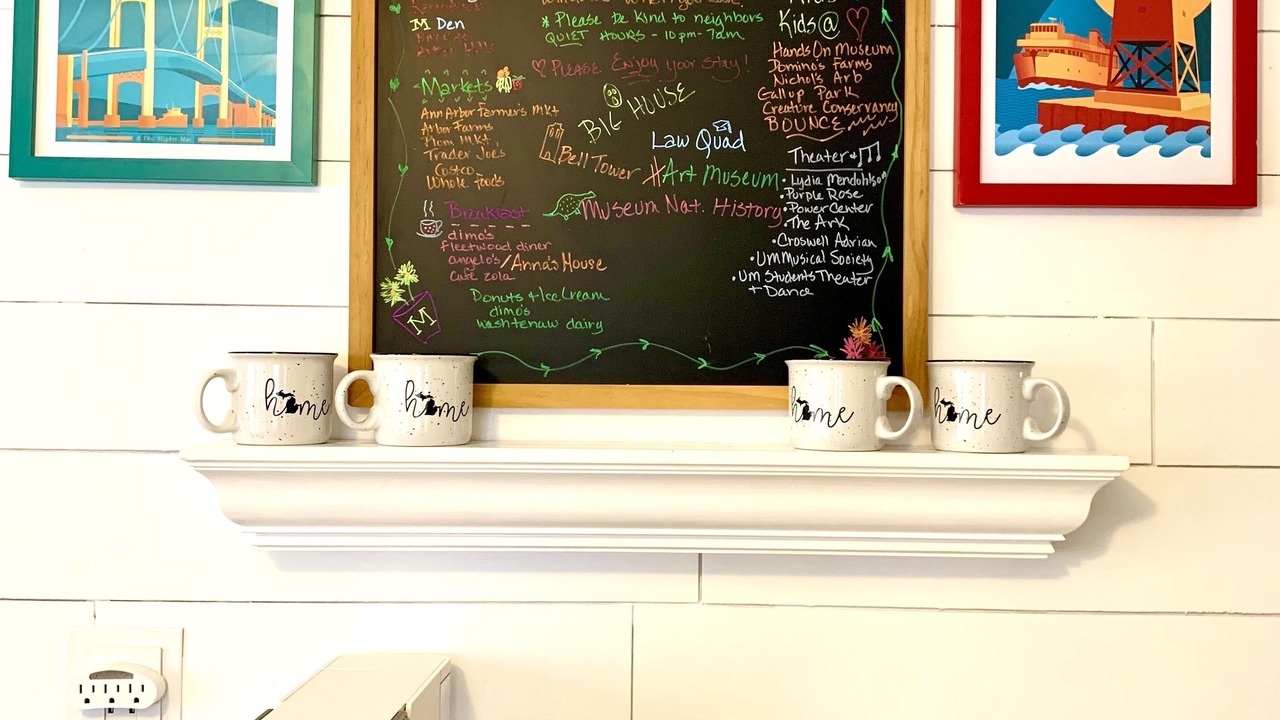 M Den
Markets
Ann Arbor Farmer's Mkt
Arbor Farms
Plum Mkt
Trader Joe's
Costco
Whole Foods
Breakfast
dimo's
fleetwood diner
angelo's/Anna's House
café zola
Donuts + Ice Cream
dimo's
washtenaw dairy
M
* Please be kind to neighbors
QUIET HOURS - 10pm - 7am
PLEASE Enjoy your stay!
BIG HOUSE
Law Quad
Bell Tower
Art Museum
Museum Nat. History
Kids @
Hands On Museum
Domino's Farms
Nichol's Arb
Gallup Park
Creature Conservancy
BOUNCE
Theater +
• Lydia Mendohlson
• Purple Rose
• Power Center
• The Ark
• Croswell Adrian
• UM Musical Society
• UM Students Theater
+ Dance
home
home
home
home